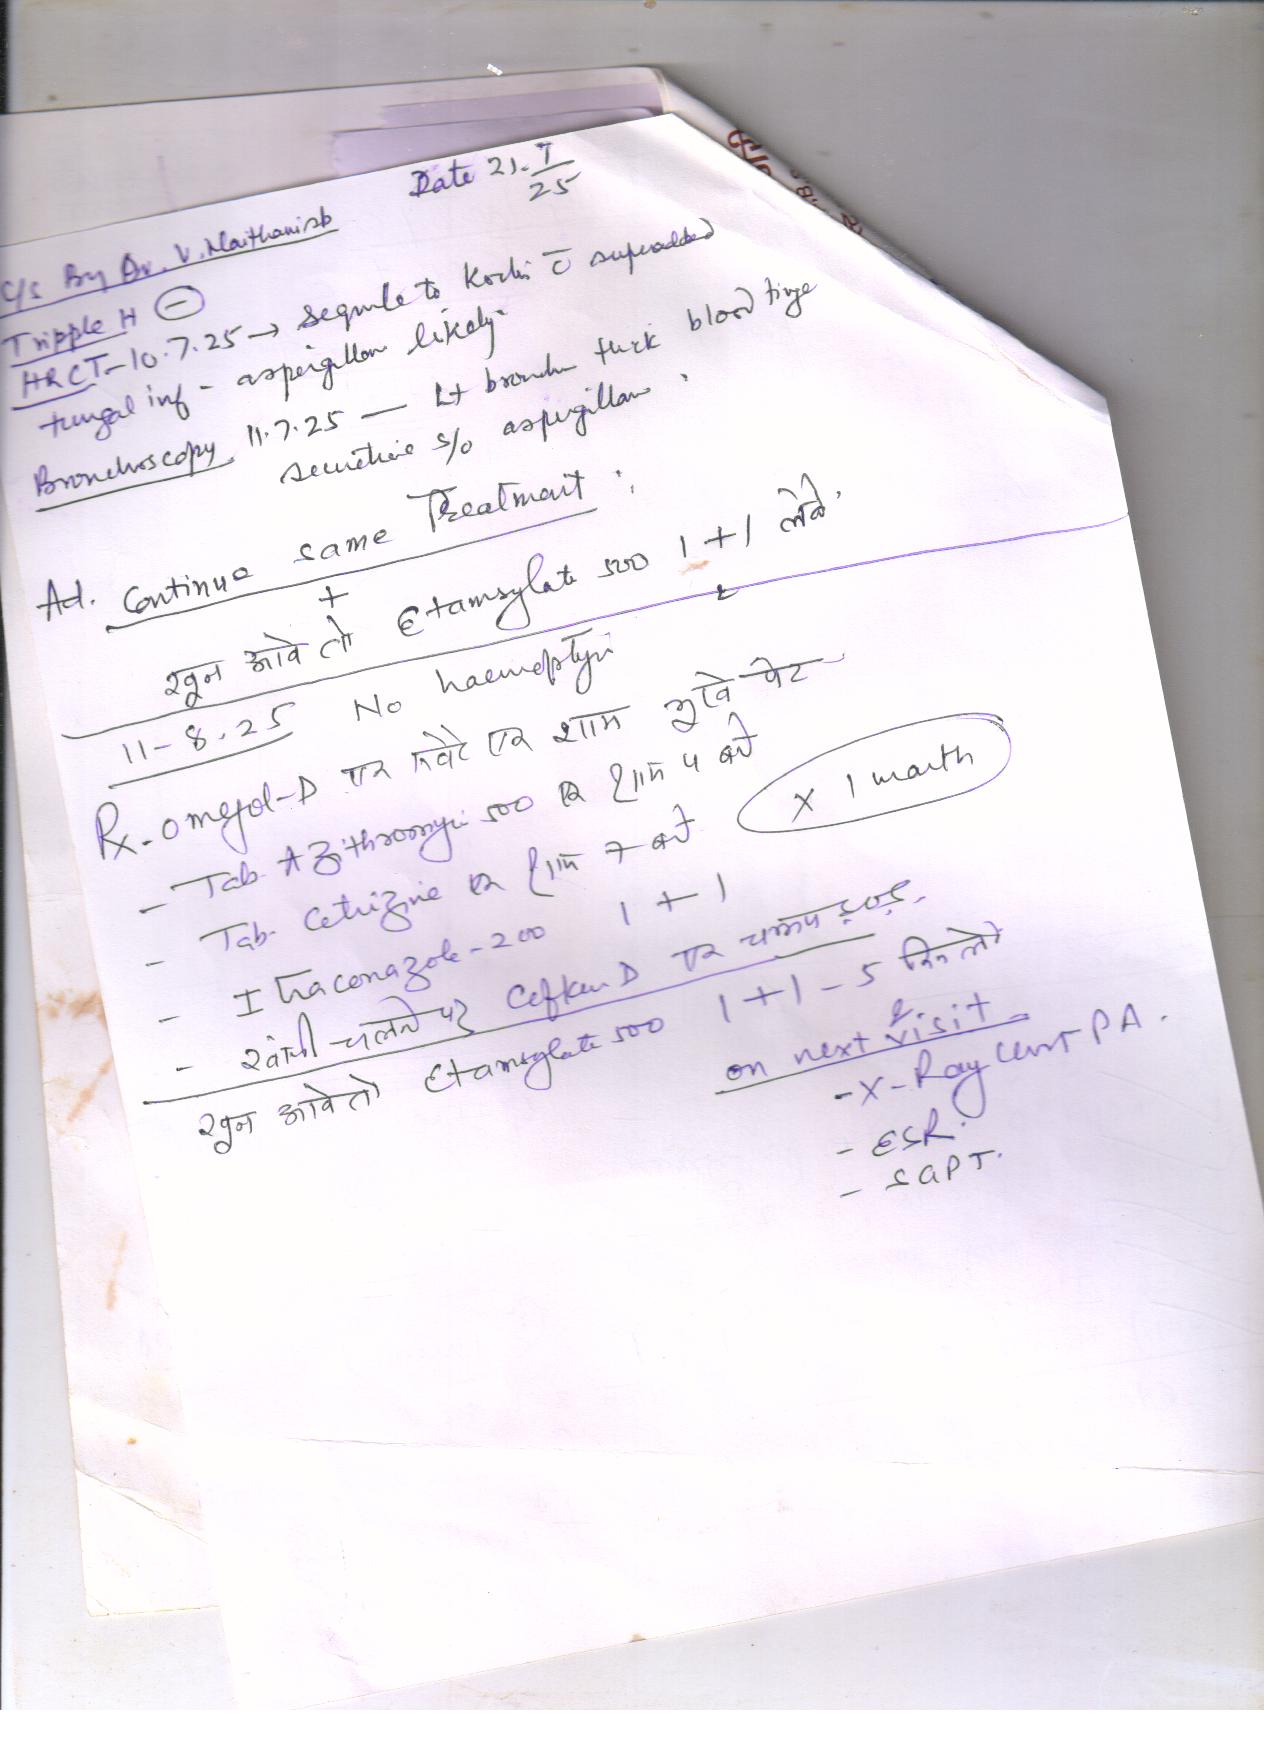 Date 21.7/25
C/s By Dr. V. Maithani sb
Tripple H ⊖
HRCT - 10.7.25 → Sequele to Koch's c̄ superadded
fungal inf - aspergillom likely
Bronchoscopy 11.7.25 — Lt bronchu thick blood tinge
secretive s/o aspergillom.
Ad. Continue same Treatmait :
+
खून आवे तो Etamsylate 500 1+1 लेवे.
11-8.25 No haemoptysi
Rx - Omejol-D एक सवेरे एक शाम भूखे पेट
- Tab Azithromyci 500 एक शाम 4 बजे
- Tab. Cetrizine एक शाम 7 बजे
x 1 month
- Itraconazole-200 1+1
- खांसी चलने पर Cefken D एक चम्मच
खून आवे तो Etamsylate 500 1+1-5 दिन लो
on next visit
- X-Ray Chest PA.
- ESR.
- SGPT.